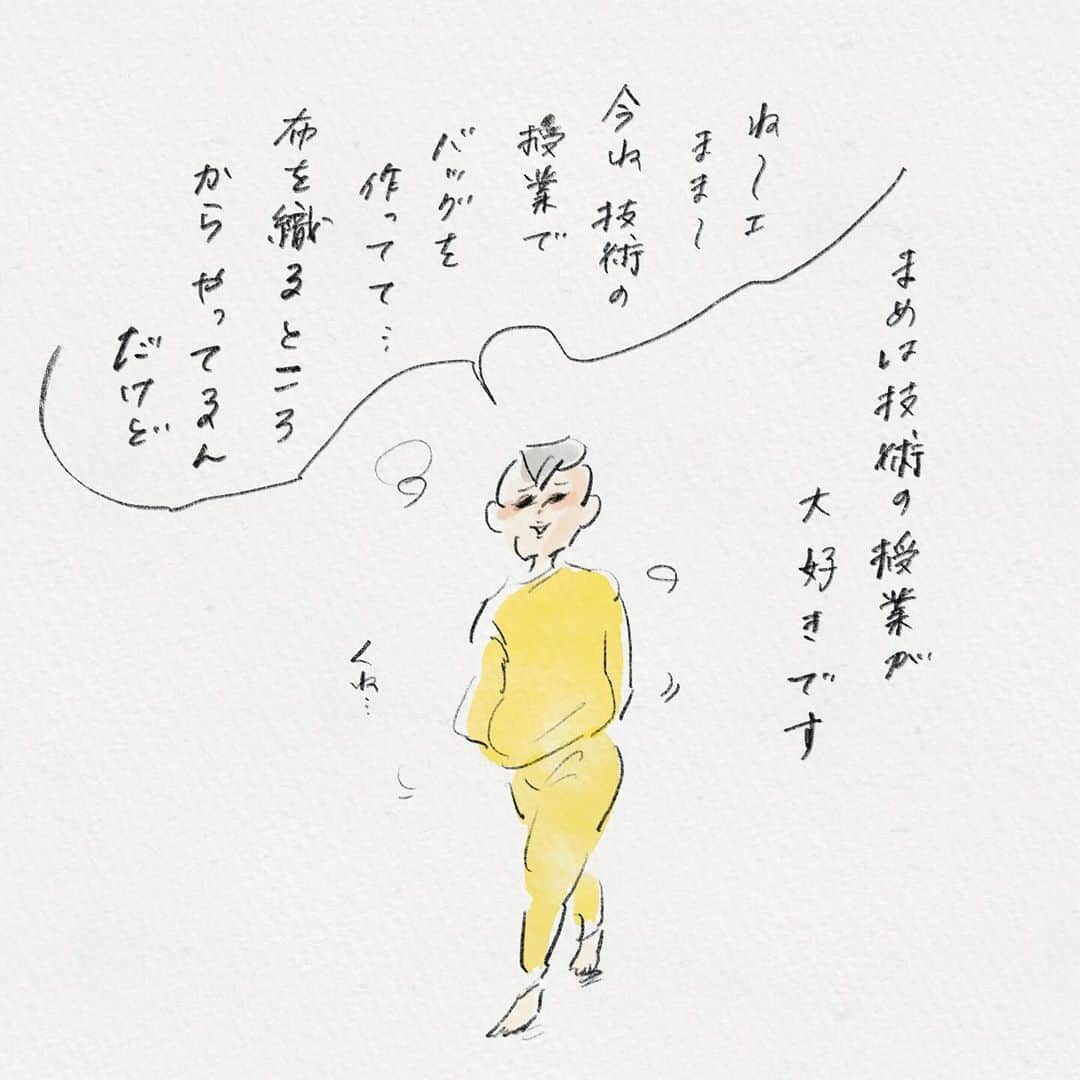 まめは技術の授業が
大好きです
ね〜ェ
まま〜
今ね 技術の
授業で
バッグを
作ってて…
布を織るところ
からやってるん
だけど
くね…